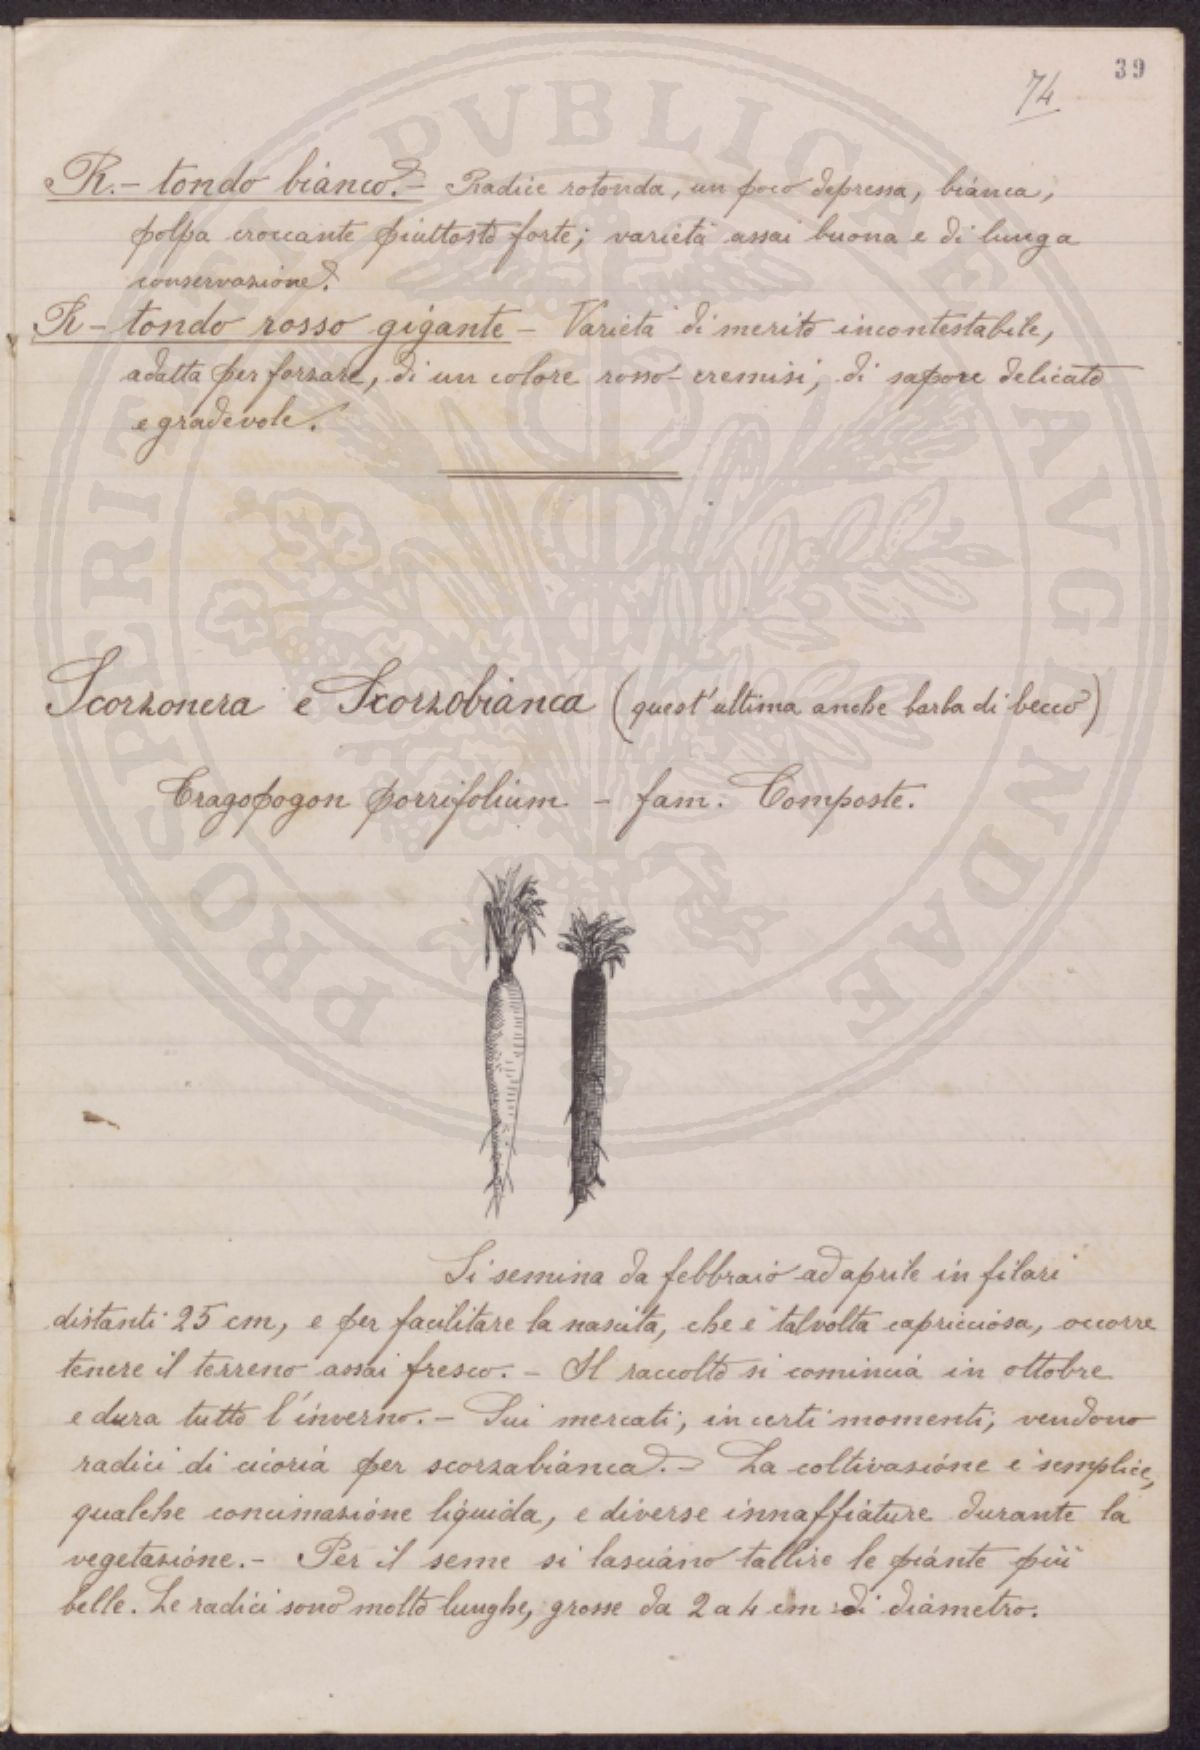 39
74
R. - tondo bianco. - Radice rotonda, un poco depressa, bianca,
polpa croccante piuttosto forte; varietà assai buona e di lunga
conservazione.
R - tondo rosso gigante - Varietà di merito incontestabile,
adatta per forzare, di un colore rosso-cremisi, di sapore delicato
e gradevole.
Scorzonera e Scorzobianca (quest'ultima anche barba di becco)
Tragopogon porrifolium - fam. Composte.
Si semina da febbraio ad aprile in filari
distanti 25 cm, e per facilitare la nascita, che è talvolta capricciosa, occorre
tenere il terreno assai fresco. - Il raccolto si comincia in ottobre
e dura tutto l'inverno. - Sui mercati, in certi momenti, vendono
radici di cicoria per scorzabianca. - La coltivazione è semplice,
qualche concimazione liquida, e diverse innaffiature durante la
vegetazione. - Per il seme si lasciano tallire le piante più
belle. Le radici sono molto lunghe, grosse da 2 a 4 cm di diametro.
PROSPERITATI PVBLICAE AVGENDAE